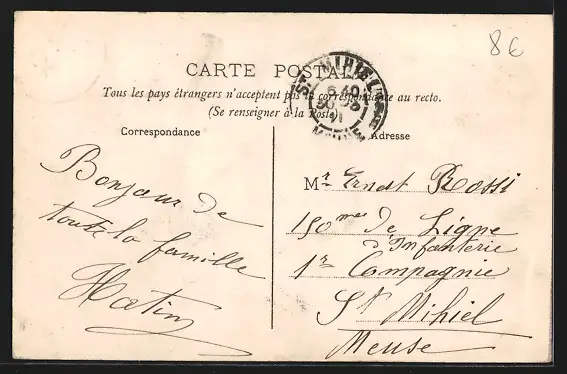 8€
CARTE POSTALE
Tous les pays étrangers n'acceptent pas la correspondance au recto.
(Se renseigner à la Poste)
ST MIHIEL
MEUSE
Correspondance
Adresse
Bonjour de
toute la famille
Mr Ernest Rossi
150mes de Ligne
d'Infanterie
1re Compagnie
St Mihiel
Meuse